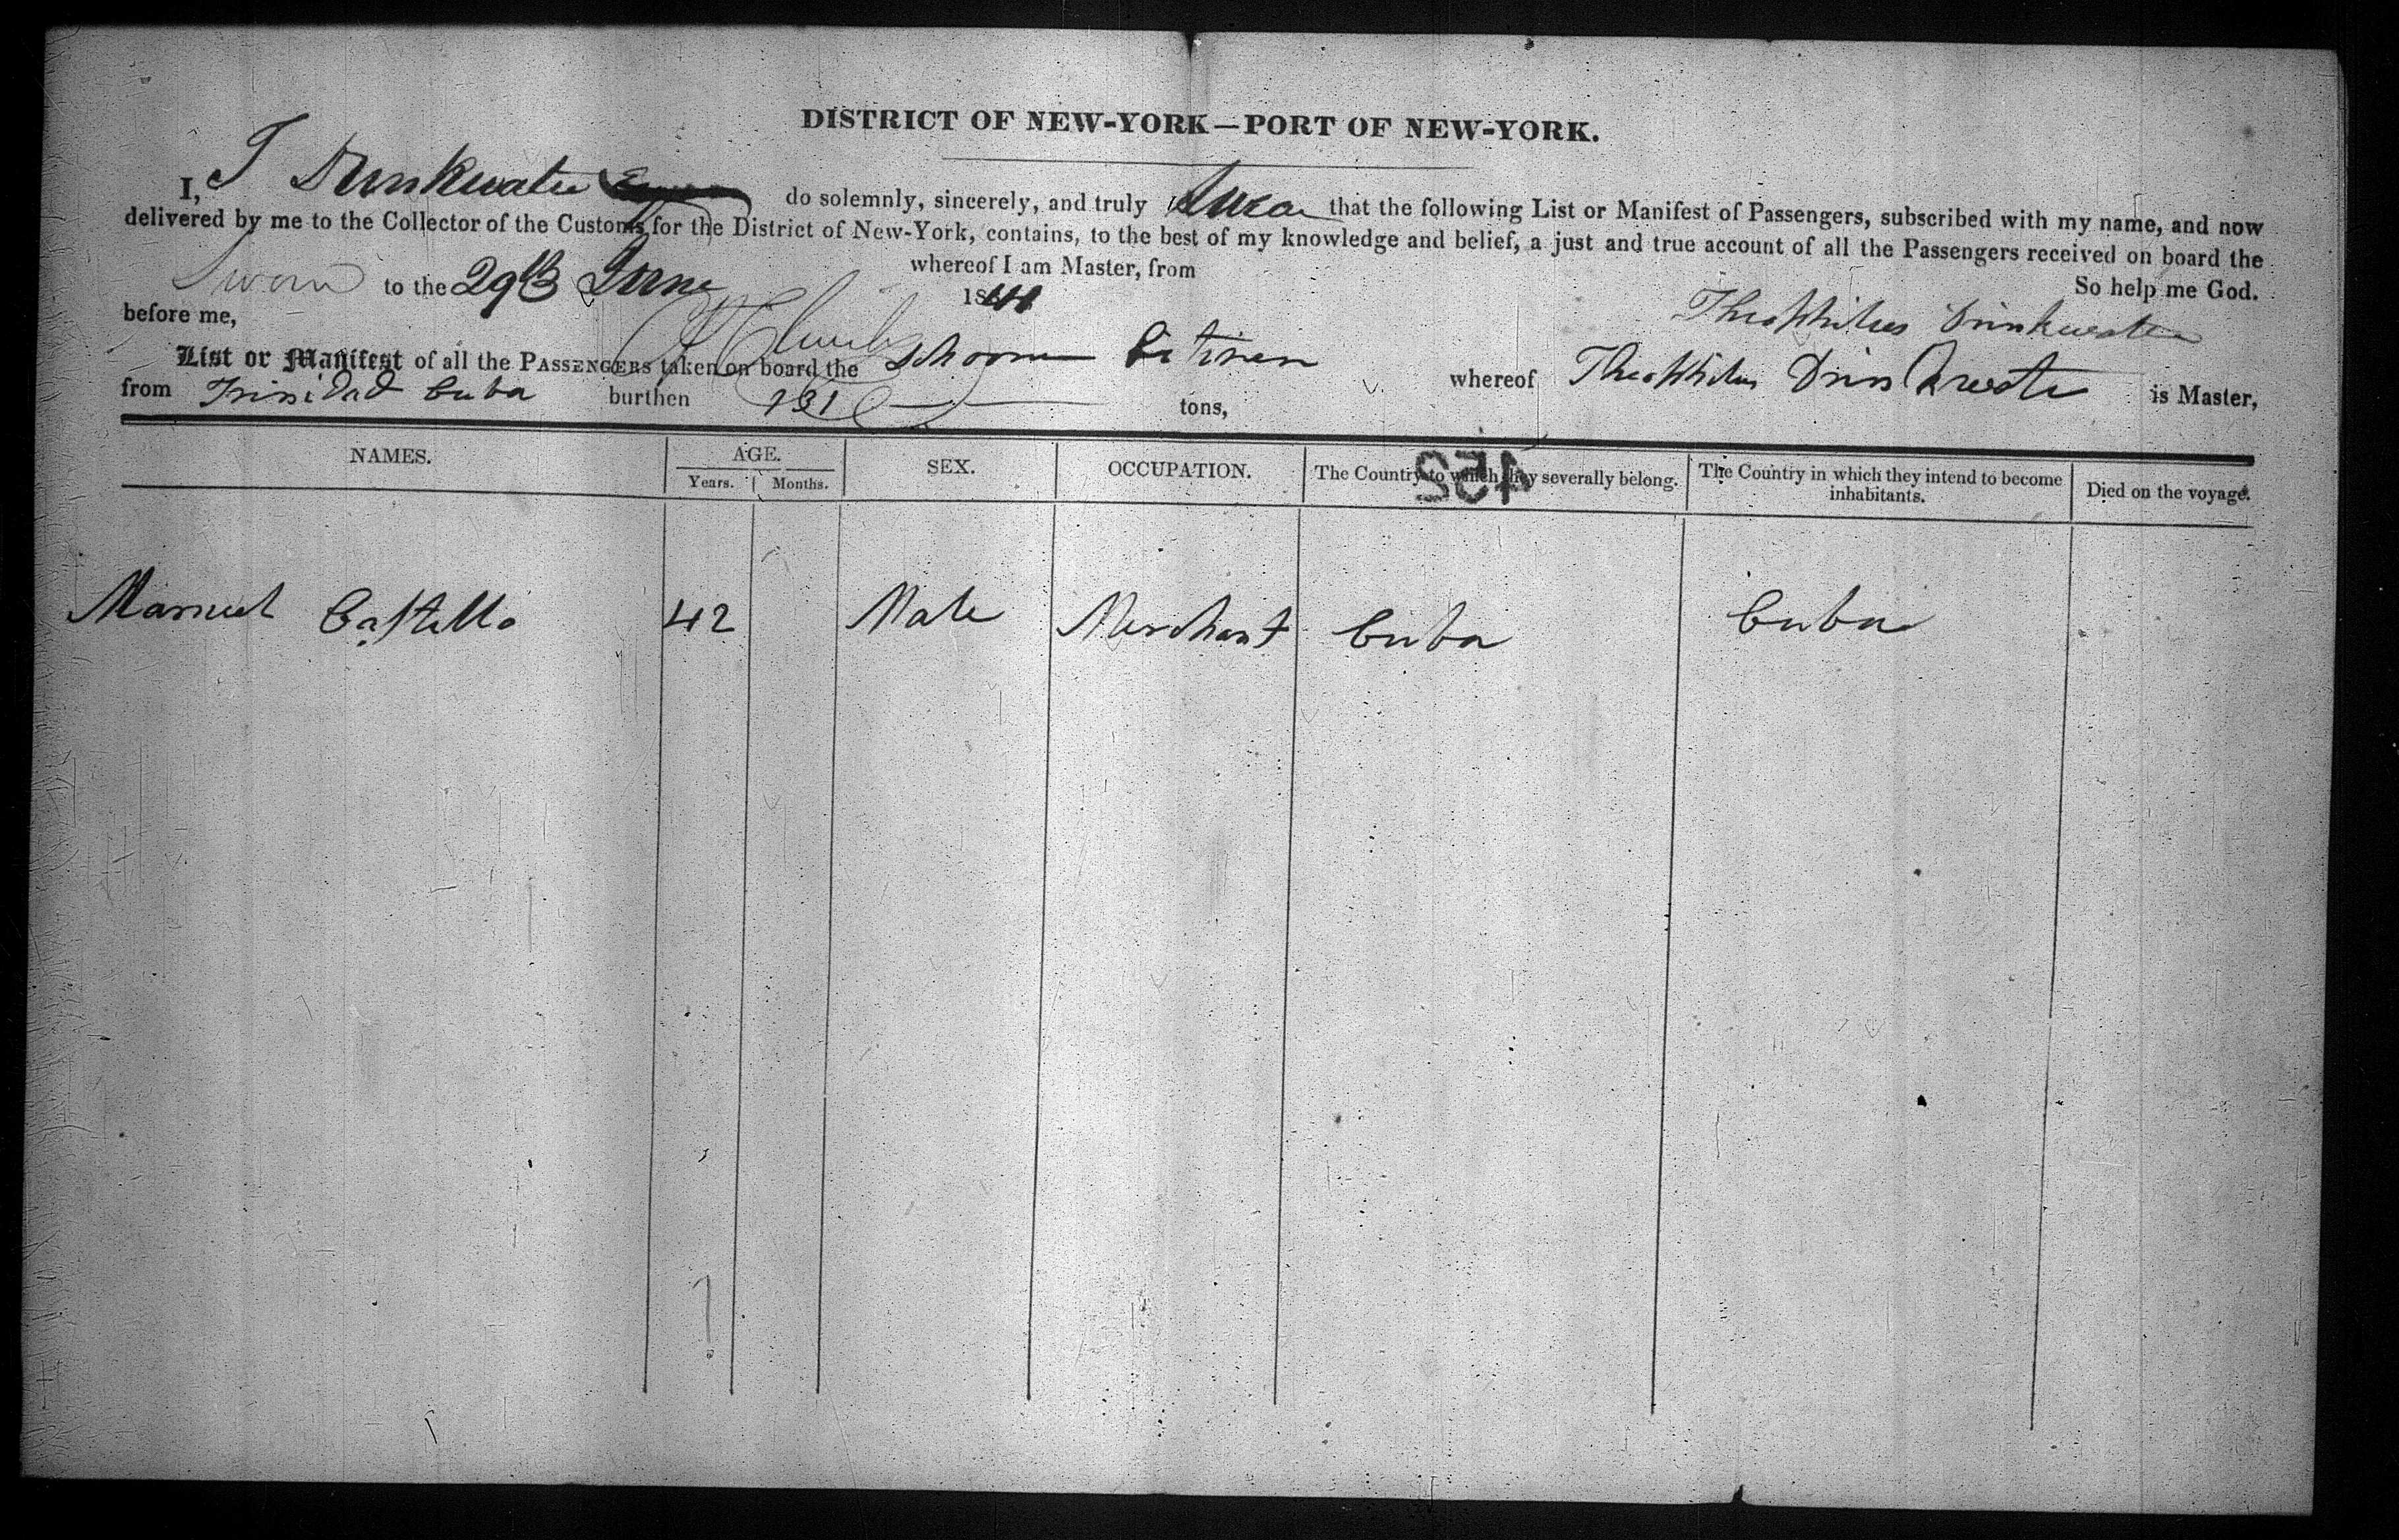 DISTRICT OF NEW-YORK—PORT OF NEW-YORK.
I, T Drinkwater do solemnly, sincerely, and truly Swear that the following List or Manifest of Passengers, subscribed with my name, and now
delivered by me to the Collector of the Customs for the District of New-York, contains, to the best of my knowledge and belief, a just and true account of all the Passengers received on board the
whereof I am Master, from
Sworn to the 29th June 1841 So help me God.
before me, Theophilus Drinkwater
List or Manifest of all the PASSENGERS taken on board the Schooner Citizen whereof Theophilus Drinkwater is Master,
from Trinidad Cuba burthen 131 tons,
NAMES. AGE. SEX. OCCUPATION. The Country to which they severally belong. The Country in which they intend to become inhabitants. Died on the voyage.
Years. Months.
452
Manuel Castello 42 Male Merchant Cuba Cuba
1